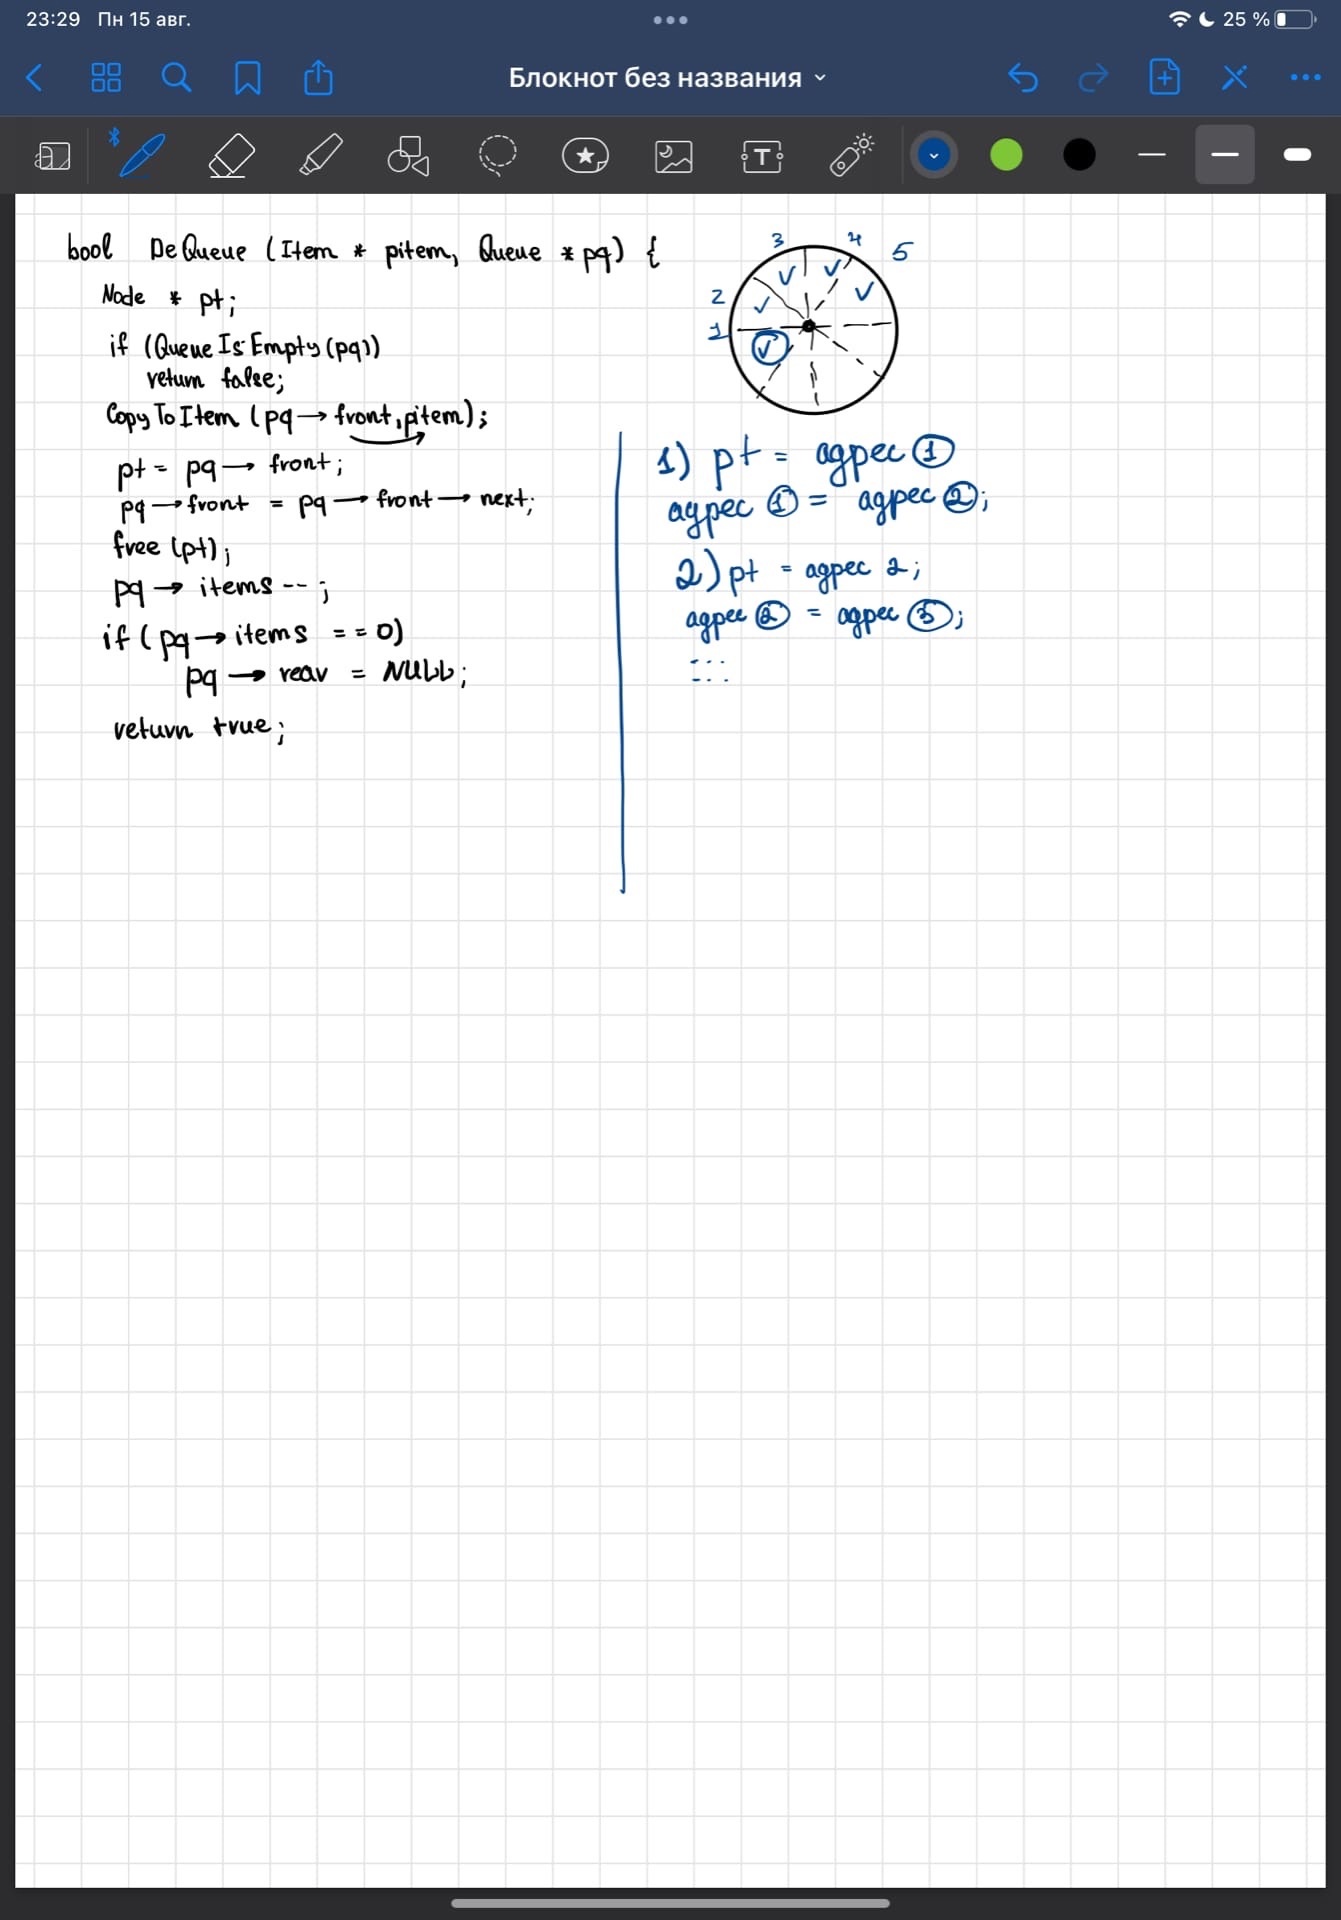 23:29 Пн 15 авг.
25 %
Блокнот без названия
T
bool DeQueue (Item * pitem, Queue * pq) {
Node * pt;
if (QueueIsEmpty(pq))
return false;
CopyToItem (pq→front, pitem);
pt = pq→ front;
pq→front = pq→front→next;
free (pt);
pq→ items--;
if (pq→items == 0)
pq→ rear = NULL;
return true;
3 4 5
2
1
1) pt = адрес 1
адрес 1 = адрес 2;
2) pt = адрес 2;
адрес 2 = адрес 3;